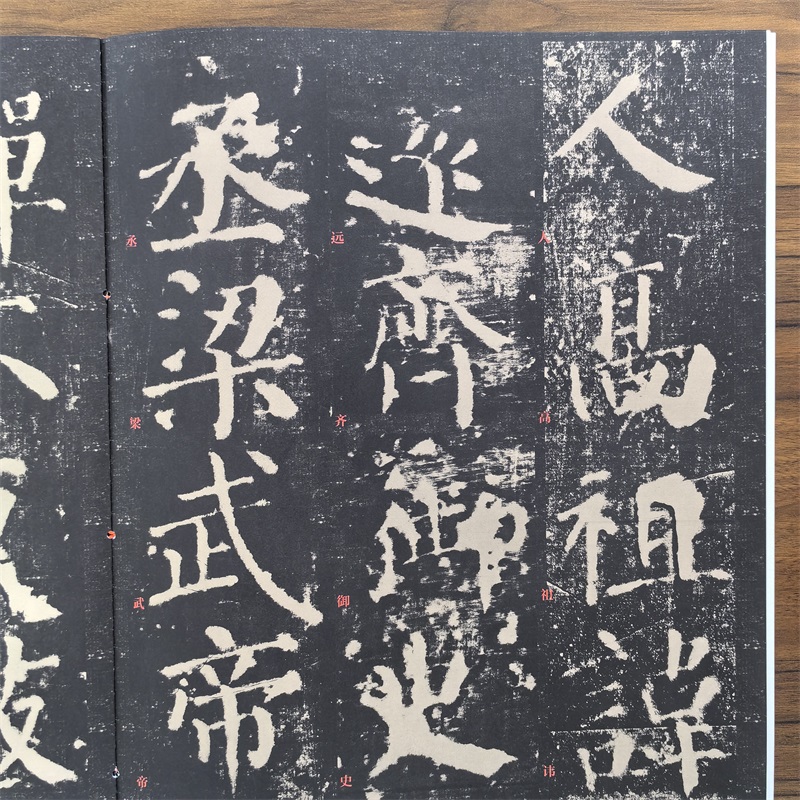 人高祖諱
人高祖讳
遠齊御史
远齐御史
丞梁武帝
丞梁武帝